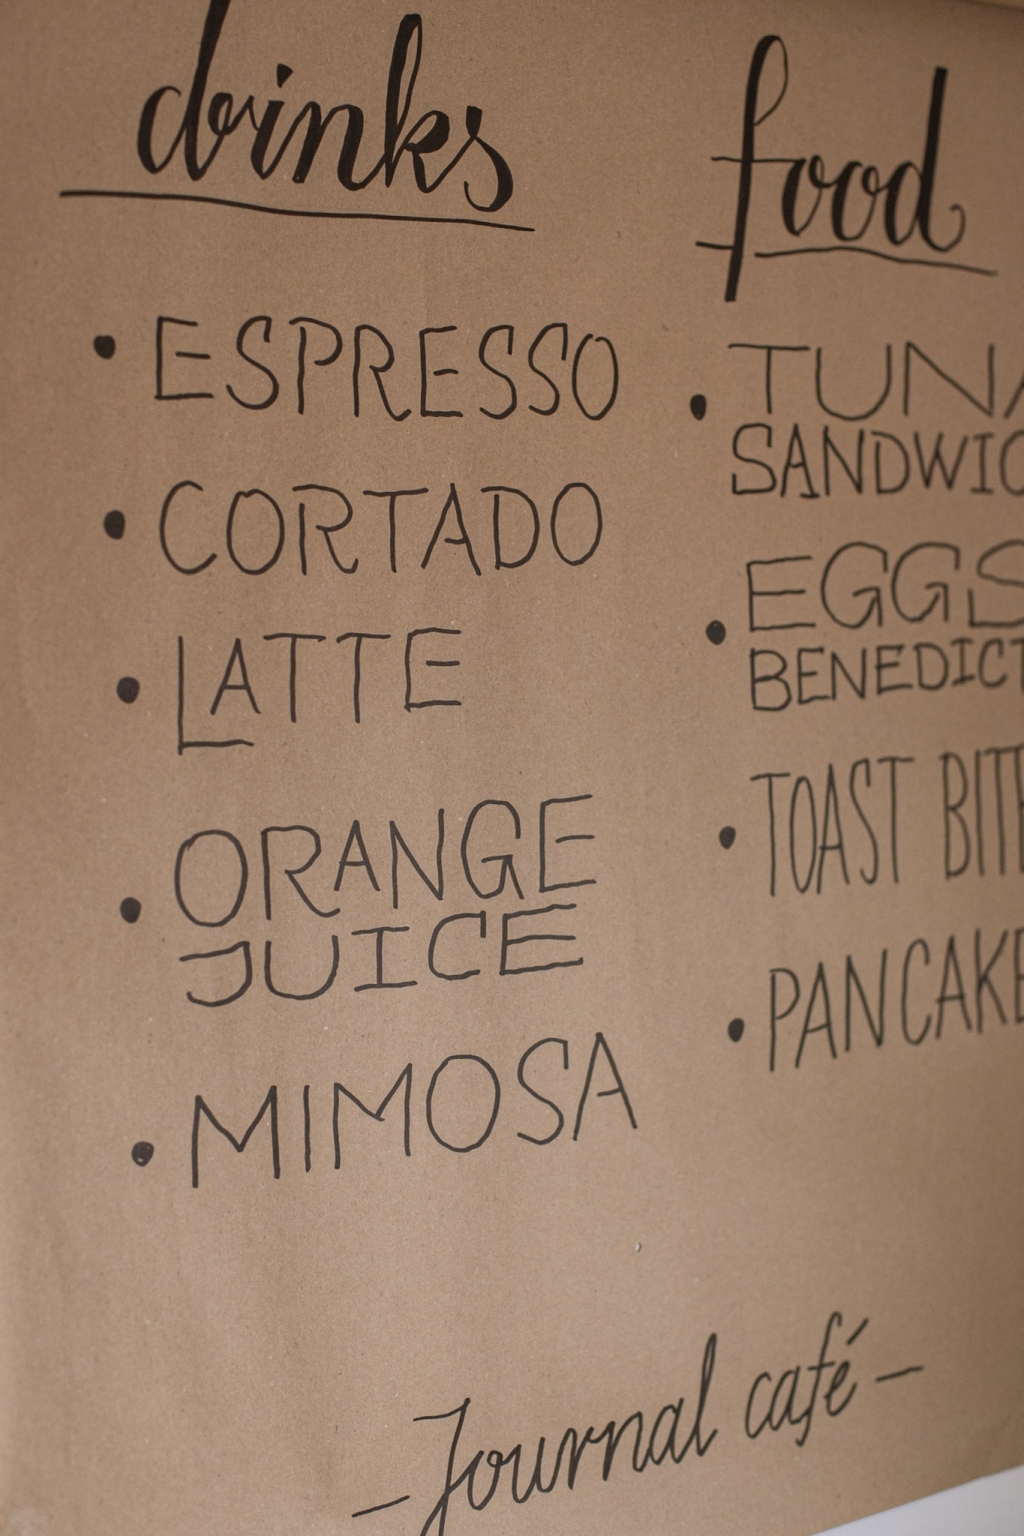 drinks
ESPRESSO
CORTADO
LATTE
ORANGE
JUICE
MIMOSA
food
TUNA
SANDWIC
EGGS
BENEDICT
TOAST BITE
PANCAKE
- Journal café -